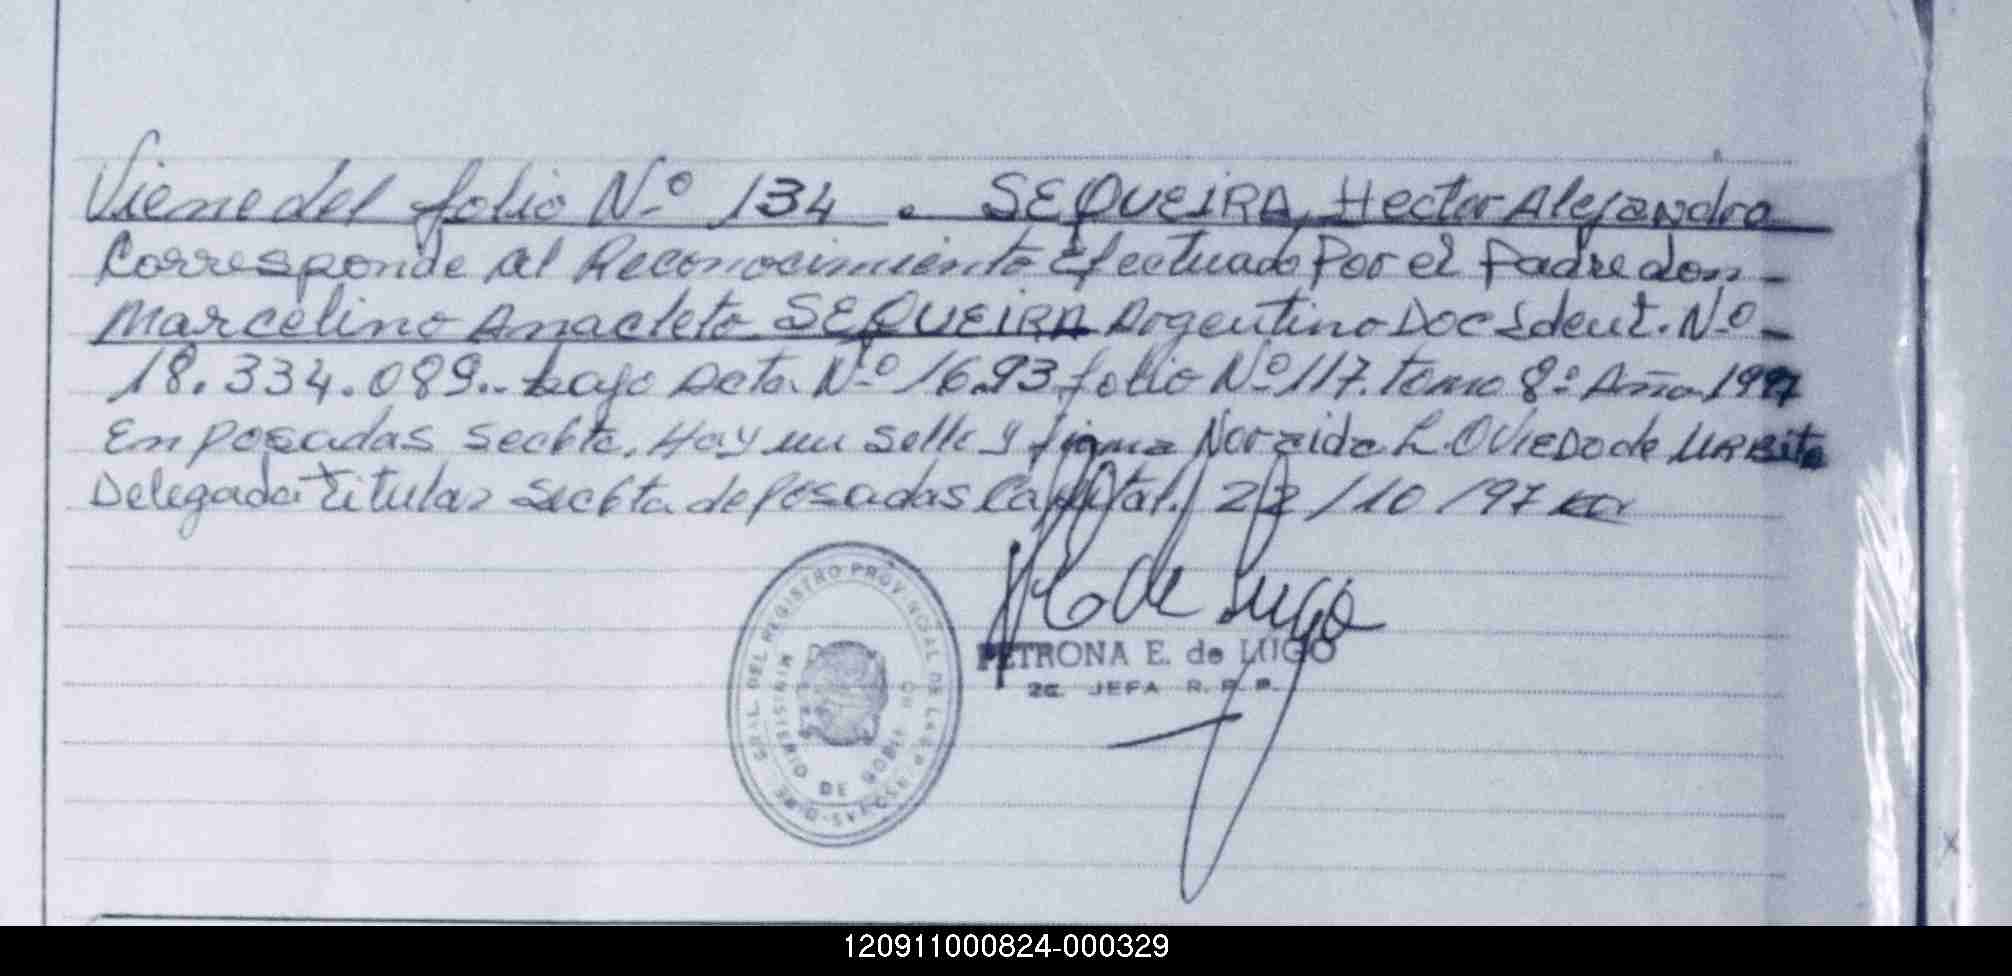 Viene del folio Nº 134. SEQUEIRA, Hector Alejandro
Corresponde al Reconocimiento Efectuado Por el Padre don
Marcelino Anacleto SEQUEIRA Argentino Doc Ident. Nº
18.334.089.- bajo Acta Nº 1693 folio Nº 117. tomo 8º Año 1997
En Posadas Sec 6ta. Hay un sello y firma Noraida L. OVIEDO de URBita
Delegada Titular Sec 6ta. de Posadas Capital. 22/10/97
E de Lugo
PETRONA E. de LUGO
2a. JEFA R. P. P.
GRAL. DEL REGISTRO PROVINCIAL DE LAS PERSONAS - DIREC.
MINISTERIO DE GOBIERNO
120911000824-000329